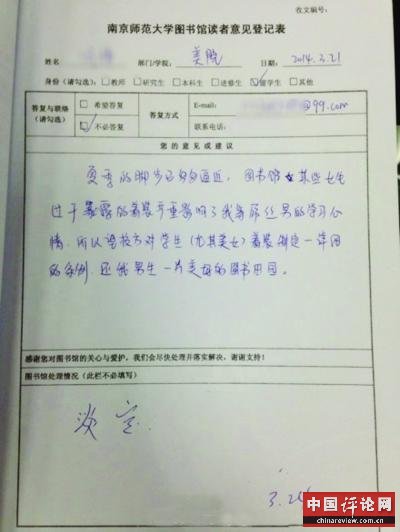 收文编号:
南京师范大学图书馆读者意见登记表
姓名 部门/学院: 美院 日期: 2014.3.21
身份(请勾选) □教师 □研究生 □本科生 □进修生 ☑留学生 □其他
答复与联络(请勾选) □希望答复 ☑不必答复 答复方式 E-mail: @99.com 联系电话:
您的意见或建议
夏季的脚步已匆匆逼近,图书馆内某些女生
过于暴露的着装严重影响了我等屌丝男的学习心
情,所以望校方对学生(尤其美女)着装制定一详细
的条例,还我男生一片美好的图书田园。
感谢您对图书馆的关心与爱护,我们会尽快处理并落实解决,谢谢支持!
图书馆处理情况(此栏不必填写)
淡定.
中国评论网
chinareview.com